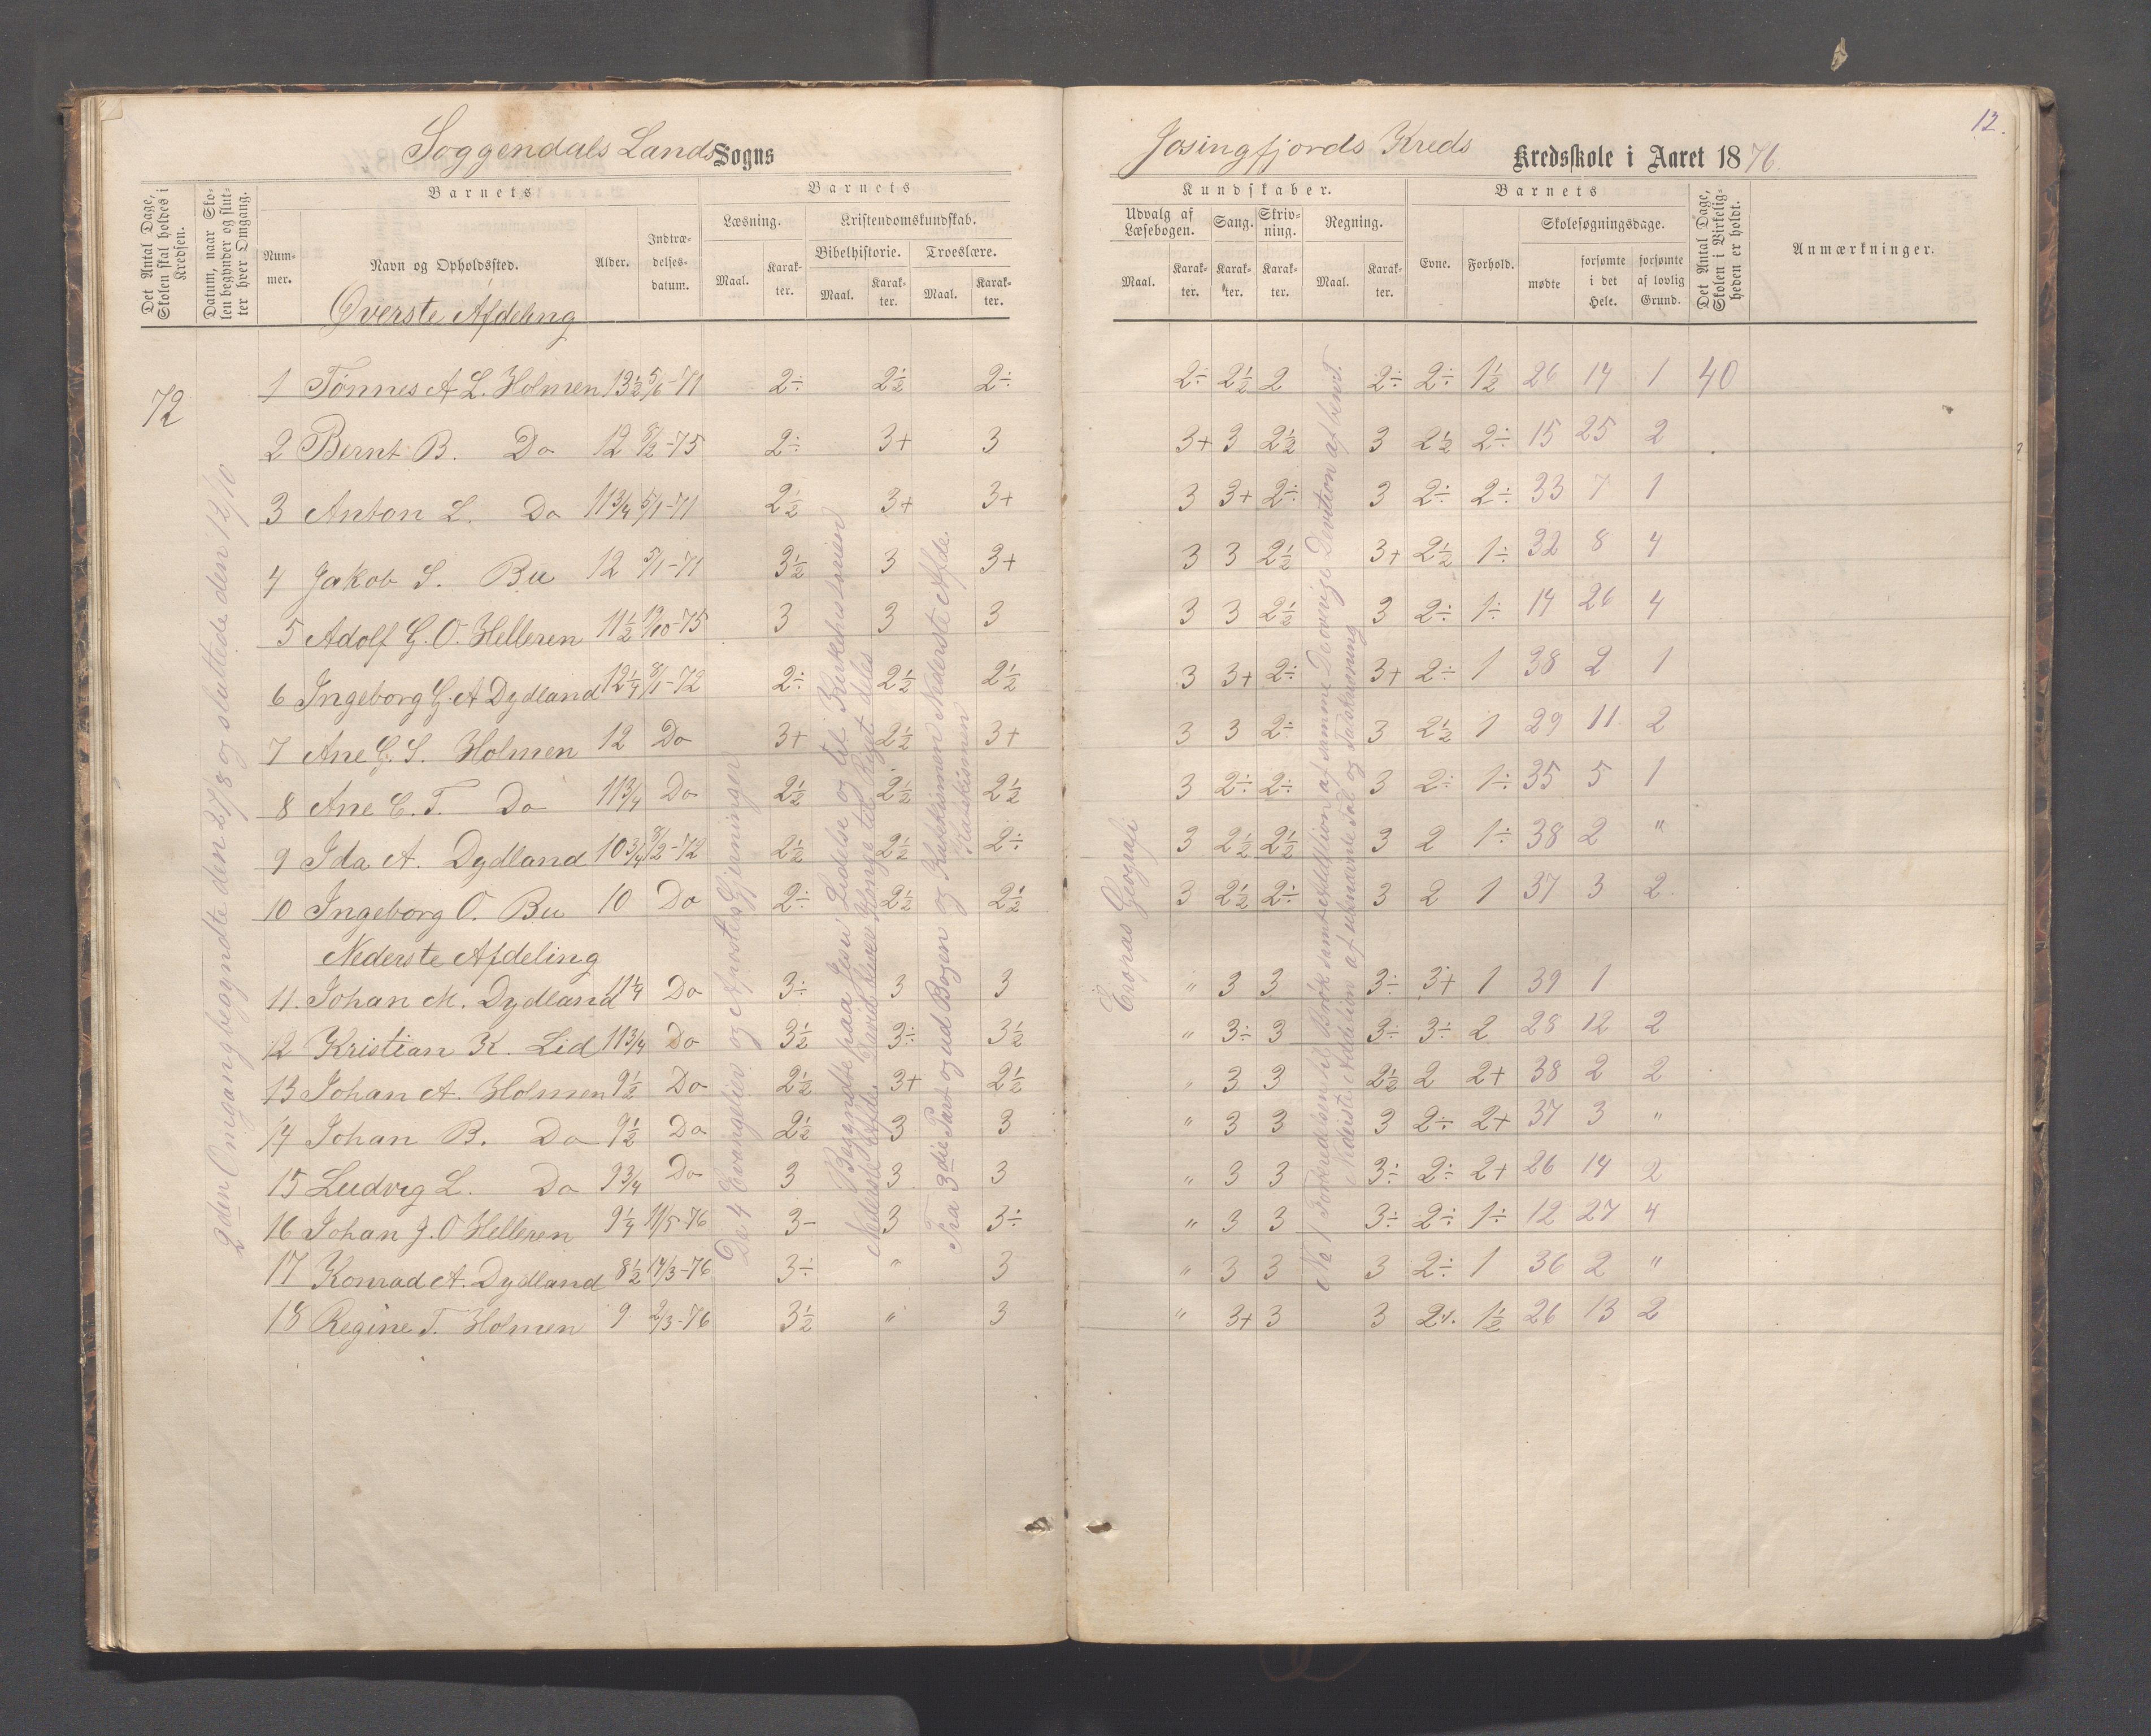 12.
Soggendals Lands Sogns
Jøsingfjords Kreds Kredsskole i Aaret 1876.
Det Antal Dage, Skolen skal holdes i Kredsen.
Datum, naar Skolen begynder og slutter hver Omgang.
Barnets
Nummer.
Navn og Opholdssted.
Alder.
Indtrædelsesdatum.
Barnets
Læsning.
Kristendomskundskab.
Bibelhistorie.
Troeslære.
Maal. Karakter. Maal. Karakter. Maal. Karakter.
Kundskaber.
Udvalg af Læsebogen.
Sang.
Skrivning.
Regning.
Maal. Karakter. Karakter. Karakter. Maal. Karakter.
Barnets
Evne. Forhold.
Skolesøgningsdage.
mødte
forsømte i det Hele.
forsømte af lovlig Grund.
Det Antal Dage, Skolen i Virkeligheden er holdt.
Anmærkninger.
Øverste Afdeling
72
2den Omgang begyndte den 27/8 og sluttede den 12/10
De 4 Evangelier og Apostles Gjerninger
Begyndte paa Jesu Lidelse og til Kirkehistorien
Nederste Afde.
Fra 3die Part og ud Bogen og Katekismen Nederste Afde.
Evropas Geografi
1 Tønnes A L. Holmen 13½ 5/6-71 2÷ 2½ 2÷ 2÷ 2½ 2 2÷ 2÷ 1½ 26 14 1 40
2 Bernt B. Do 12 8/2-75 2÷ 3+ 3 3+ 3 2½ 3 2½ 2÷ 15 25 2
3 Anton L. Do 11¾ 5/1-71 2½ 3+ 3+ 3 3+ 2÷ 3 2÷ 2÷ 33 7 1
4 Jakob S. Bu 12 5/1-71 3½ 3 3+ 3 3 2½ 3+ 2½ 1÷ 32 8 4
5 Adolf G. O. Helleren 11½ 12/10-75 3 3 3 3 3 2½ 3 2÷ 1÷ 14 26 4
6 Ingeborg G. A Dydland 12¼ 8/1-72 2÷ 2½ 2½ 3 3+ 2÷ 3+ 2÷ 1 38 2 1
7 Ane G. S. Holmen 12 Do 3+ 2½ 3+ 3 3 2÷ 3 2½ 1 29 11 2
8 Ane C. T. Do 11¾ Do 2½ 2½ 2½ 3 2÷ 2÷ 3 2÷ 1÷ 35 5 1
9 Ida A. Dydland 10¾ 8/2-72 2½ 2½ 2÷ 3 2½ 2½ 3 2 1÷ 38 2 "
10 Ingeborg O. Bu 10 Do 2÷ 2½ 2½ 3 2½ 2÷ 3 2 1 37 3 2
Nederste Afdeling
11. Johan M. Dydland 11¼ Do 3÷ 3 3 " 3 3 3÷ 3+ 1 39 1
12 Kristian K. Lid 11¾ Do 3½ 3÷ 3½ " 3÷ 3 3÷ 3÷ 2 28 12 2
13 Johan A. Holmen 9½ Do 2½ 3+ 2½ " 3 3 2½ 2 2+ 38 2 2
14 Johan B. Do 9½ Do 2½ 3 3 " 3 3 3 2÷ 2+ 37 3 "
15 Ludvig L. Do 9¾ Do 3 3 3 " 3 3 3÷ 2÷ 2+ 26 14 2
16 Johan J. O Helleren 9¼ 11/5-76 3- 3 3÷ " 3 3 3÷ 2÷ 1÷ 12 27 4
17 Konrad A. Dydland 8½ 14/3-76 3÷ " 3 " 3 3 3 2÷ 1 36 2 "
18 Regine T. Holmen 9 2/3-76 3½ " 3 " 3+ 3 3 2÷ 1½ 26 13 2